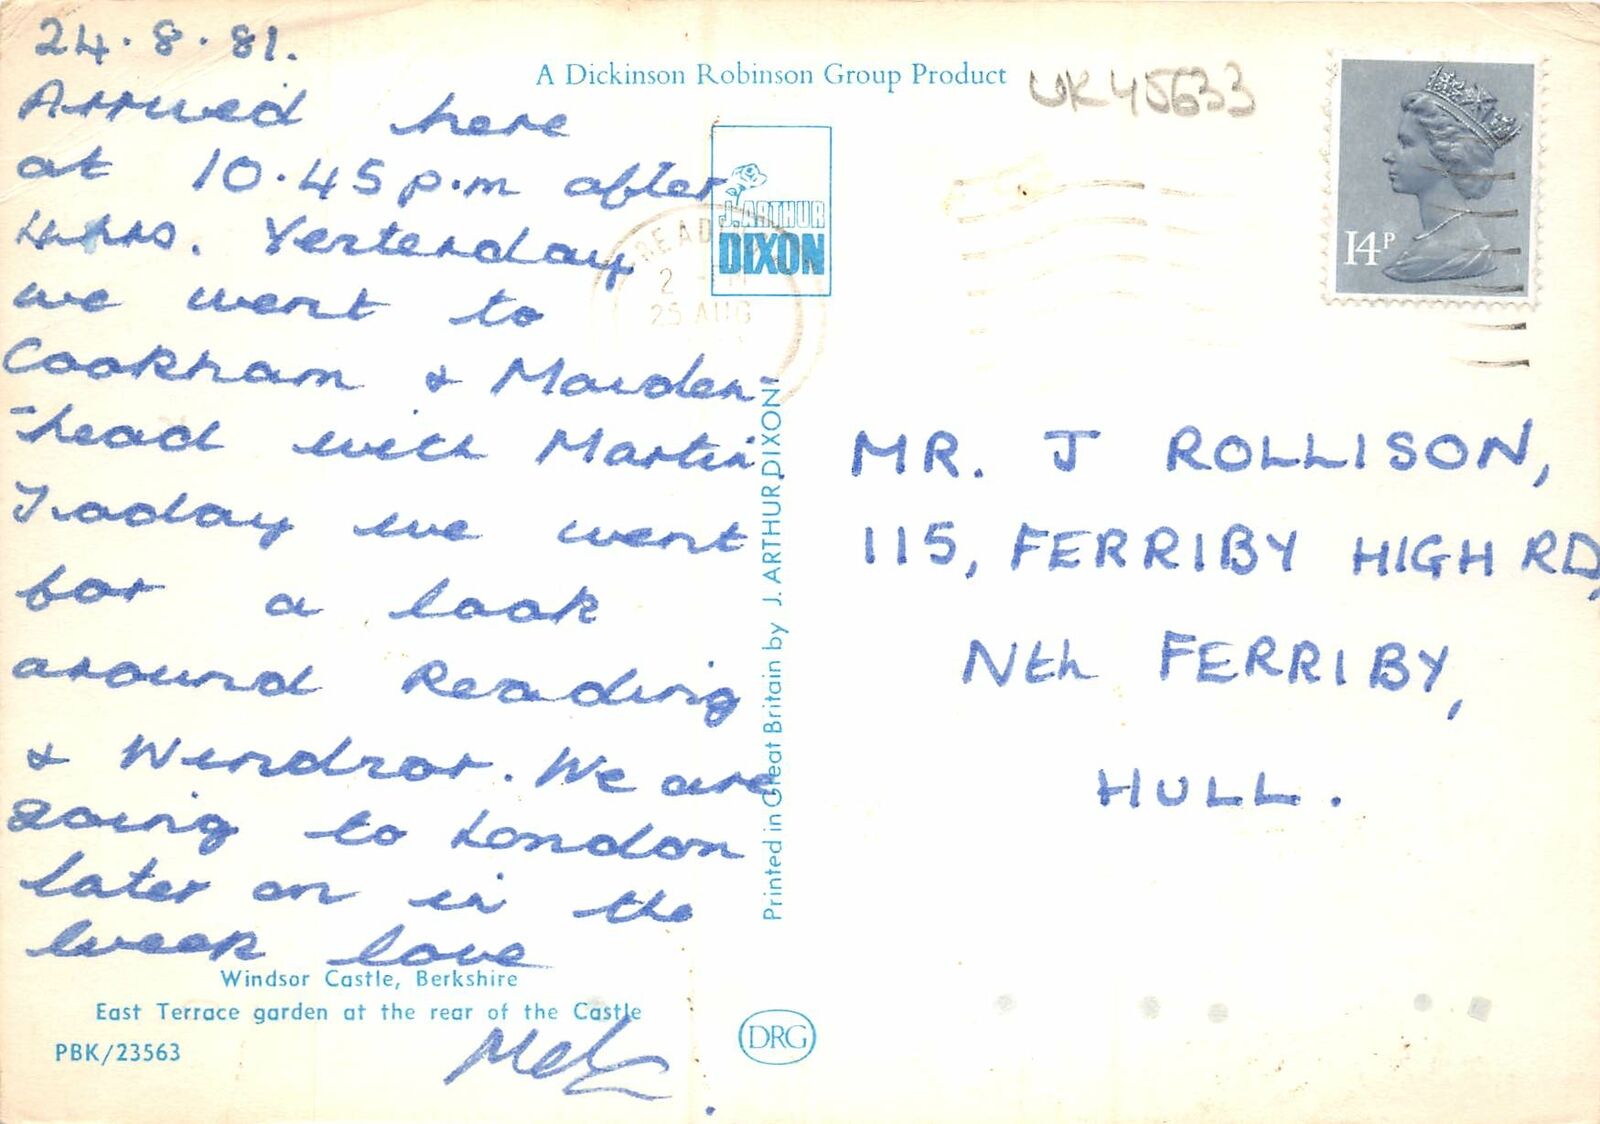 24.8.81.
Arrived here
at 10.45 p.m after
4 hrs. Yesterday
we went to
Cookham & Maiden-
-head with Martin.
Today we went
for a look
around Reading
& Windsor. We are
going to London
later on in the
week love
Windsor Castle, Berkshire
East Terrace garden at the rear of the Castle
PBK/23563
A Dickinson Robinson Group Product
UK45633
J. ARTHUR
DIXON
READ
2
25 AUG
Printed in Great Britain by J. ARTHUR DIXON
DRG
14P
MR. J ROLLISON,
115, FERRIBY HIGH RD,
Nth FERRIBY,
HULL.